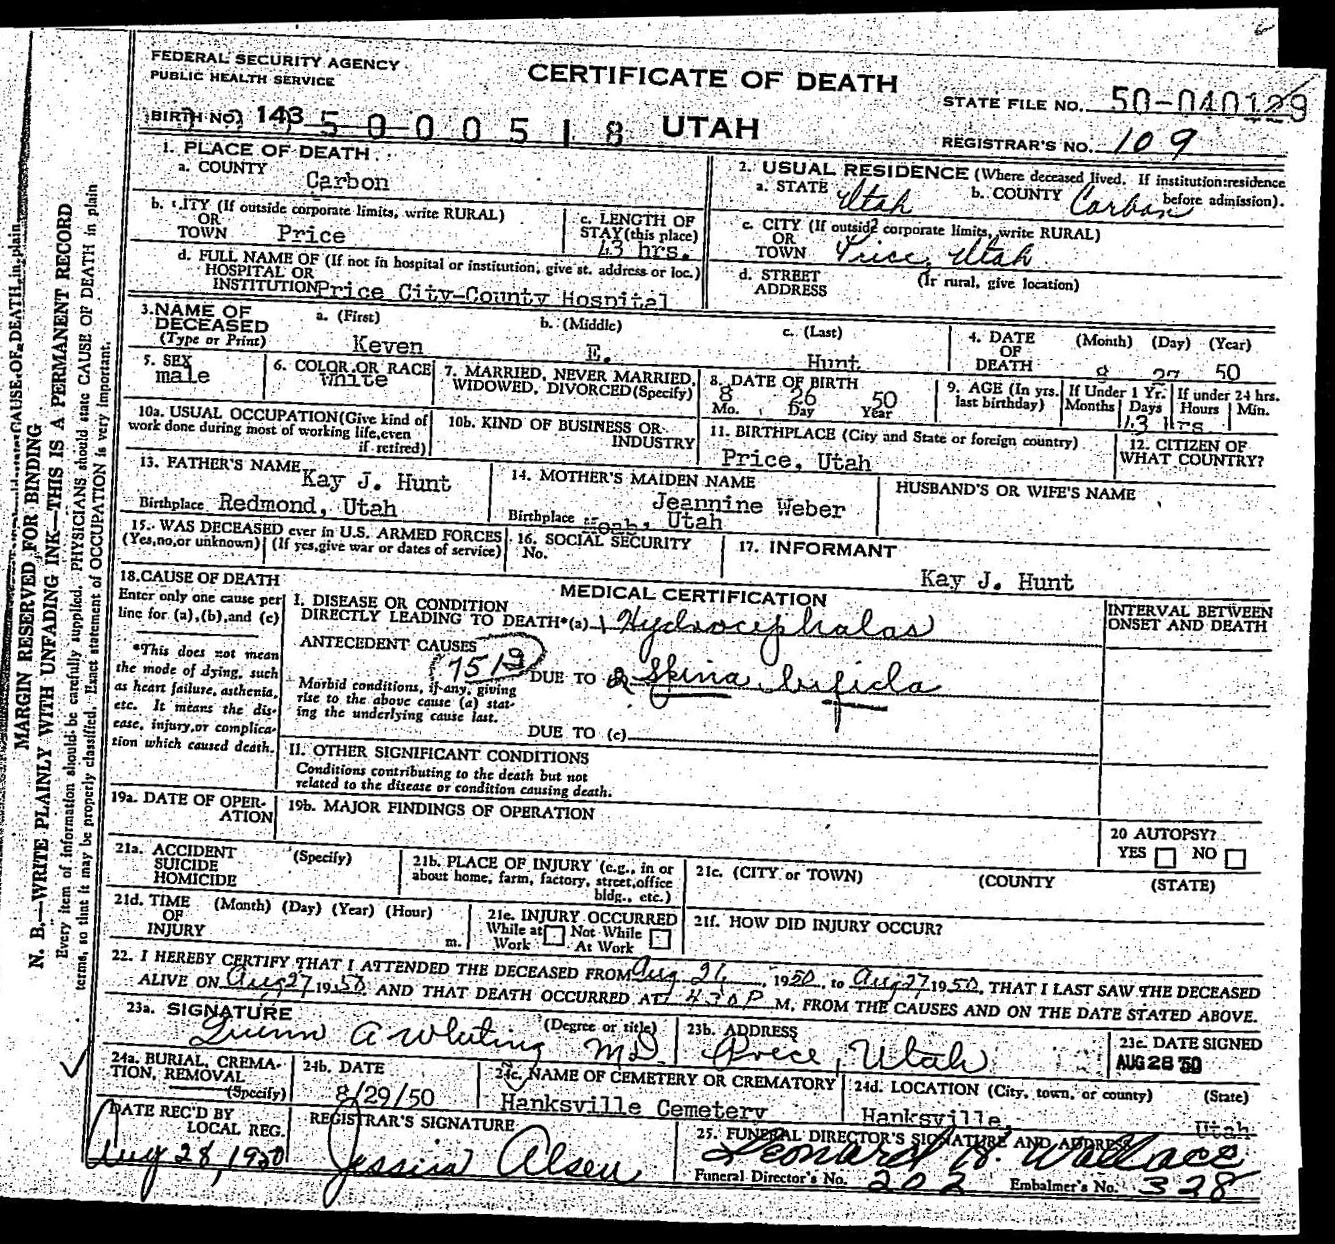 FEDERAL SECURITY AGENCY
PUBLIC HEALTH SERVICE
CERTIFICATE OF DEATH
STATE FILE NO. 50-040129
BIRTH NO. 143 5 0 0 0 5 1 8 UTAH
REGISTRAR'S NO. 109
1. PLACE OF DEATH
a. COUNTY Carbon
2. USUAL RESIDENCE (Where deceased lived. If institution: residence before admission).
a. STATE Utah b. COUNTY Carbon
b. CITY (If outside corporate limits, write RURAL) OR TOWN Price
c. LENGTH OF STAY (this place) 43 hrs.
c. CITY (If outside corporate limits, write RURAL) OR TOWN Price, Utah
d. FULL NAME OF (If not in hospital or institution, give st. address or loc.) HOSPITAL OR INSTITUTION Price City-County Hospital
d. STREET ADDRESS (If rural, give location)
3. NAME OF DECEASED (Type or Print)
a. (First) Keven
b. (Middle) E.
c. (Last) Hunt
4. DATE OF DEATH (Month) (Day) (Year) 8 27 50
5. SEX male
6. COLOR OR RACE White
7. MARRIED, NEVER MARRIED, WIDOWED, DIVORCED (Specify)
8. DATE OF BIRTH 8 26 50 Mo. Day Year
9. AGE (In yrs. last birthday) If Under 1 Yr. Months Days If under 24 hrs. Hours Min. 43 hrs
10a. USUAL OCCUPATION (Give kind of work done during most of working life, even if retired)
10b. KIND OF BUSINESS OR INDUSTRY
11. BIRTHPLACE (City and State or foreign country) Price, Utah
12. CITIZEN OF WHAT COUNTRY?
13. FATHER'S NAME Kay J. Hunt
Birthplace Redmond, Utah
14. MOTHER'S MAIDEN NAME Jeannine Weber
Birthplace Utah
HUSBAND'S OR WIFE'S NAME
15. WAS DECEASED ever in U.S. ARMED FORCES (Yes, no, or unknown) (If yes, give war or dates of service)
16. SOCIAL SECURITY No.
17. INFORMANT
Kay J. Hunt
18. CAUSE OF DEATH
Enter only one cause per line for (a), (b), and (c)
*This does not mean the mode of dying, such as heart failure, asthenia, etc. It means the disease, injury, or complication which caused death.
MEDICAL CERTIFICATION
I. DISEASE OR CONDITION DIRECTLY LEADING TO DEATH*(a) 1 Hydrocephalas
ANTECEDENT CAUSES
751
Morbid conditions, if any, giving rise to the above cause (a) stating the underlying cause last.
DUE TO 2 Spina bifida
DUE TO (c)
INTERVAL BETWEEN ONSET AND DEATH
II. OTHER SIGNIFICANT CONDITIONS
Conditions contributing to the death but not related to the disease or condition causing death.
19a. DATE OF OPERATION
19b. MAJOR FINDINGS OF OPERATION
20 AUTOPSY? YES NO
21a. ACCIDENT SUICIDE HOMICIDE (Specify)
21b. PLACE OF INJURY (e.g., in or about home, farm, factory, street, office bldg., etc.)
21c. (CITY or TOWN) (COUNTY (STATE)
21d. TIME OF INJURY (Month) (Day) (Year) (Hour) m.
21e. INJURY OCCURRED While at Work Not While At Work
21f. HOW DID INJURY OCCUR?
22. I HEREBY CERTIFY THAT I ATTENDED THE DECEASED FROM Aug 26, 1950, to Aug 27 1950, THAT I LAST SAW THE DECEASED
ALIVE ON Aug 27 1950 AND THAT DEATH OCCURRED AT 4:30 P M, FROM THE CAUSES AND ON THE DATE STATED ABOVE.
23a. SIGNATURE (Degree or title) Quinn A Whiting MD
23b. ADDRESS Price, Utah
23c. DATE SIGNED AUG 28 50
24a. BURIAL, CREMATION, REMOVAL (Specify)
24b. DATE 8/29/50
24c. NAME OF CEMETERY OR CREMATORY Hanksville Cemetery
24d. LOCATION (City, town, or county) (State) Hanksville, Utah
DATE REC'D BY LOCAL REG. Aug 28, 1950
REGISTRAR'S SIGNATURE Jessica Olsen
25. FUNERAL DIRECTOR'S SIGNATURE AND ADDRESS Leonard H. Wallace
Funeral Director's No. 202 Embalmer's No. 328
MARGIN RESERVED FOR BINDING
N. B.—WRITE PLAINLY WITH UNFADING INK—THIS IS A PERMANENT RECORD
Every item of information should be carefully supplied. PHYSICIANS should state CAUSE OF DEATH in plain
terms, so that it may be properly classified. Exact statement of OCCUPATION is very important.